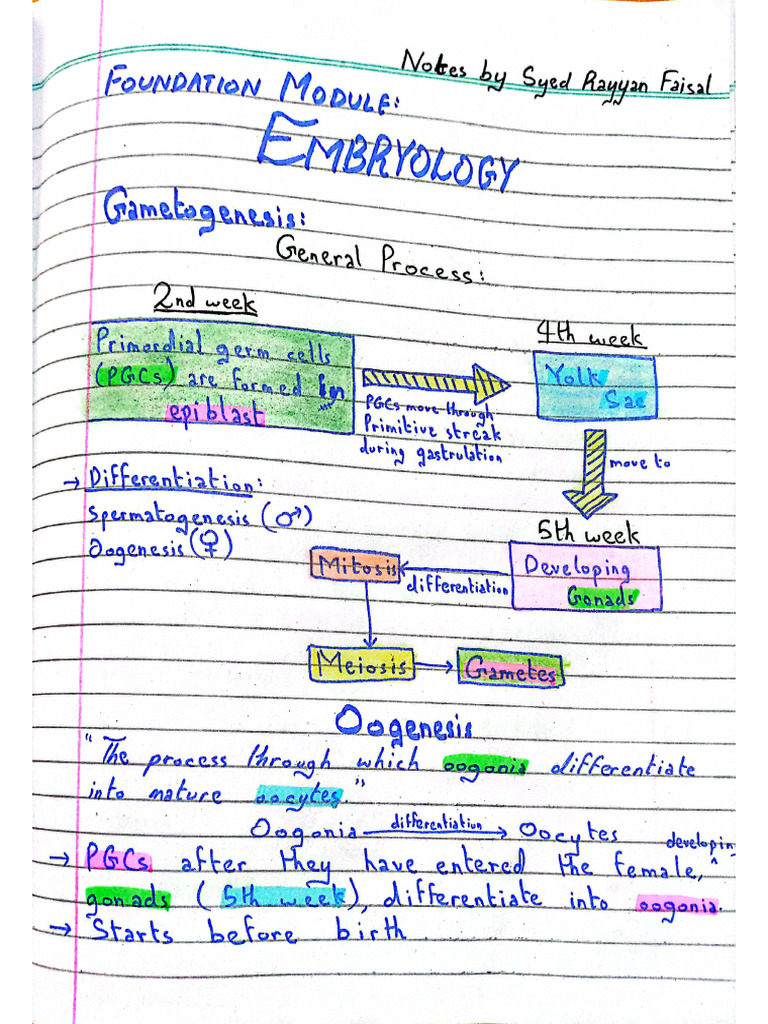 Notes by Syed Rayyan Faisal
FOUNDATION MODULE:
EMBRYOLOGY
Gametogenesis:
General Process:
2nd week
Primordial germ cells
(PGCs) are formed in
epiblast
PGCs move through
Primitive streak
during gastrulation
4th week
Yolk
Sac
move to
→ Differentiation:
Spermatogenesis (♂)
Oogenesis (♀)
5th week
Developing
Gonads
differentiation
Mitosis
Meiosis
Gametes
Oogenesis
"The process through which oogonia differentiate
into mature oocytes."
Oogonia differentiation → Oocytes
→ PGCs after they have entered the female, ^ developing
gonads (5th week), differentiate into oogonia.
→ Starts before birth